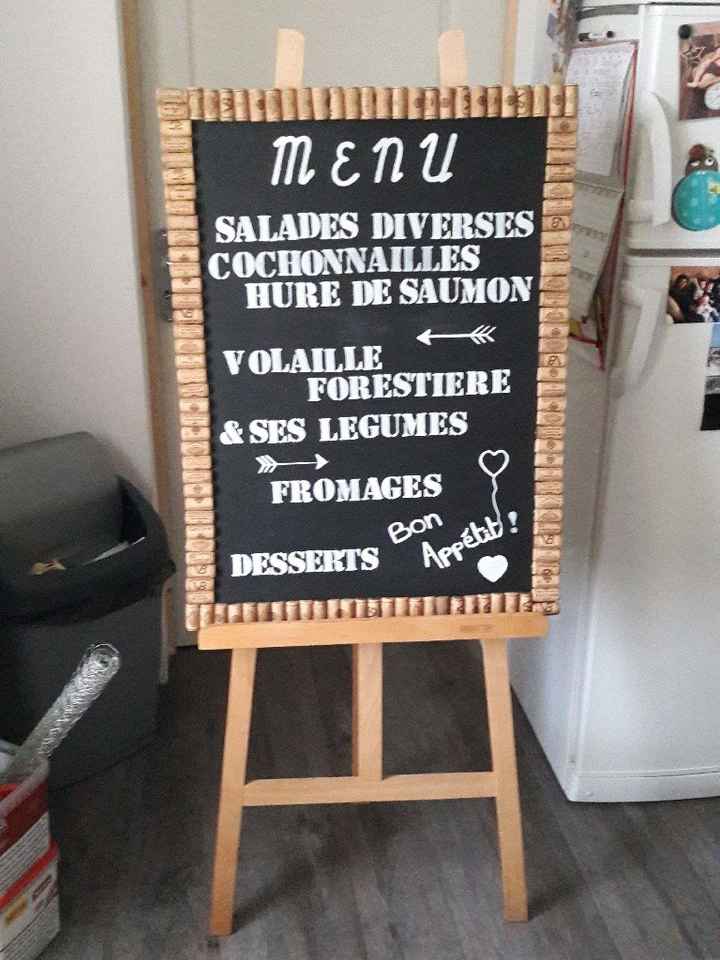 MENU
SALADES DIVERSES
COCHONNAILLES
HURE DE SAUMON
VOLAILLE
FORESTIERE
& SES LEGUMES
FROMAGES
Bon
Appétit !
DESSERTS